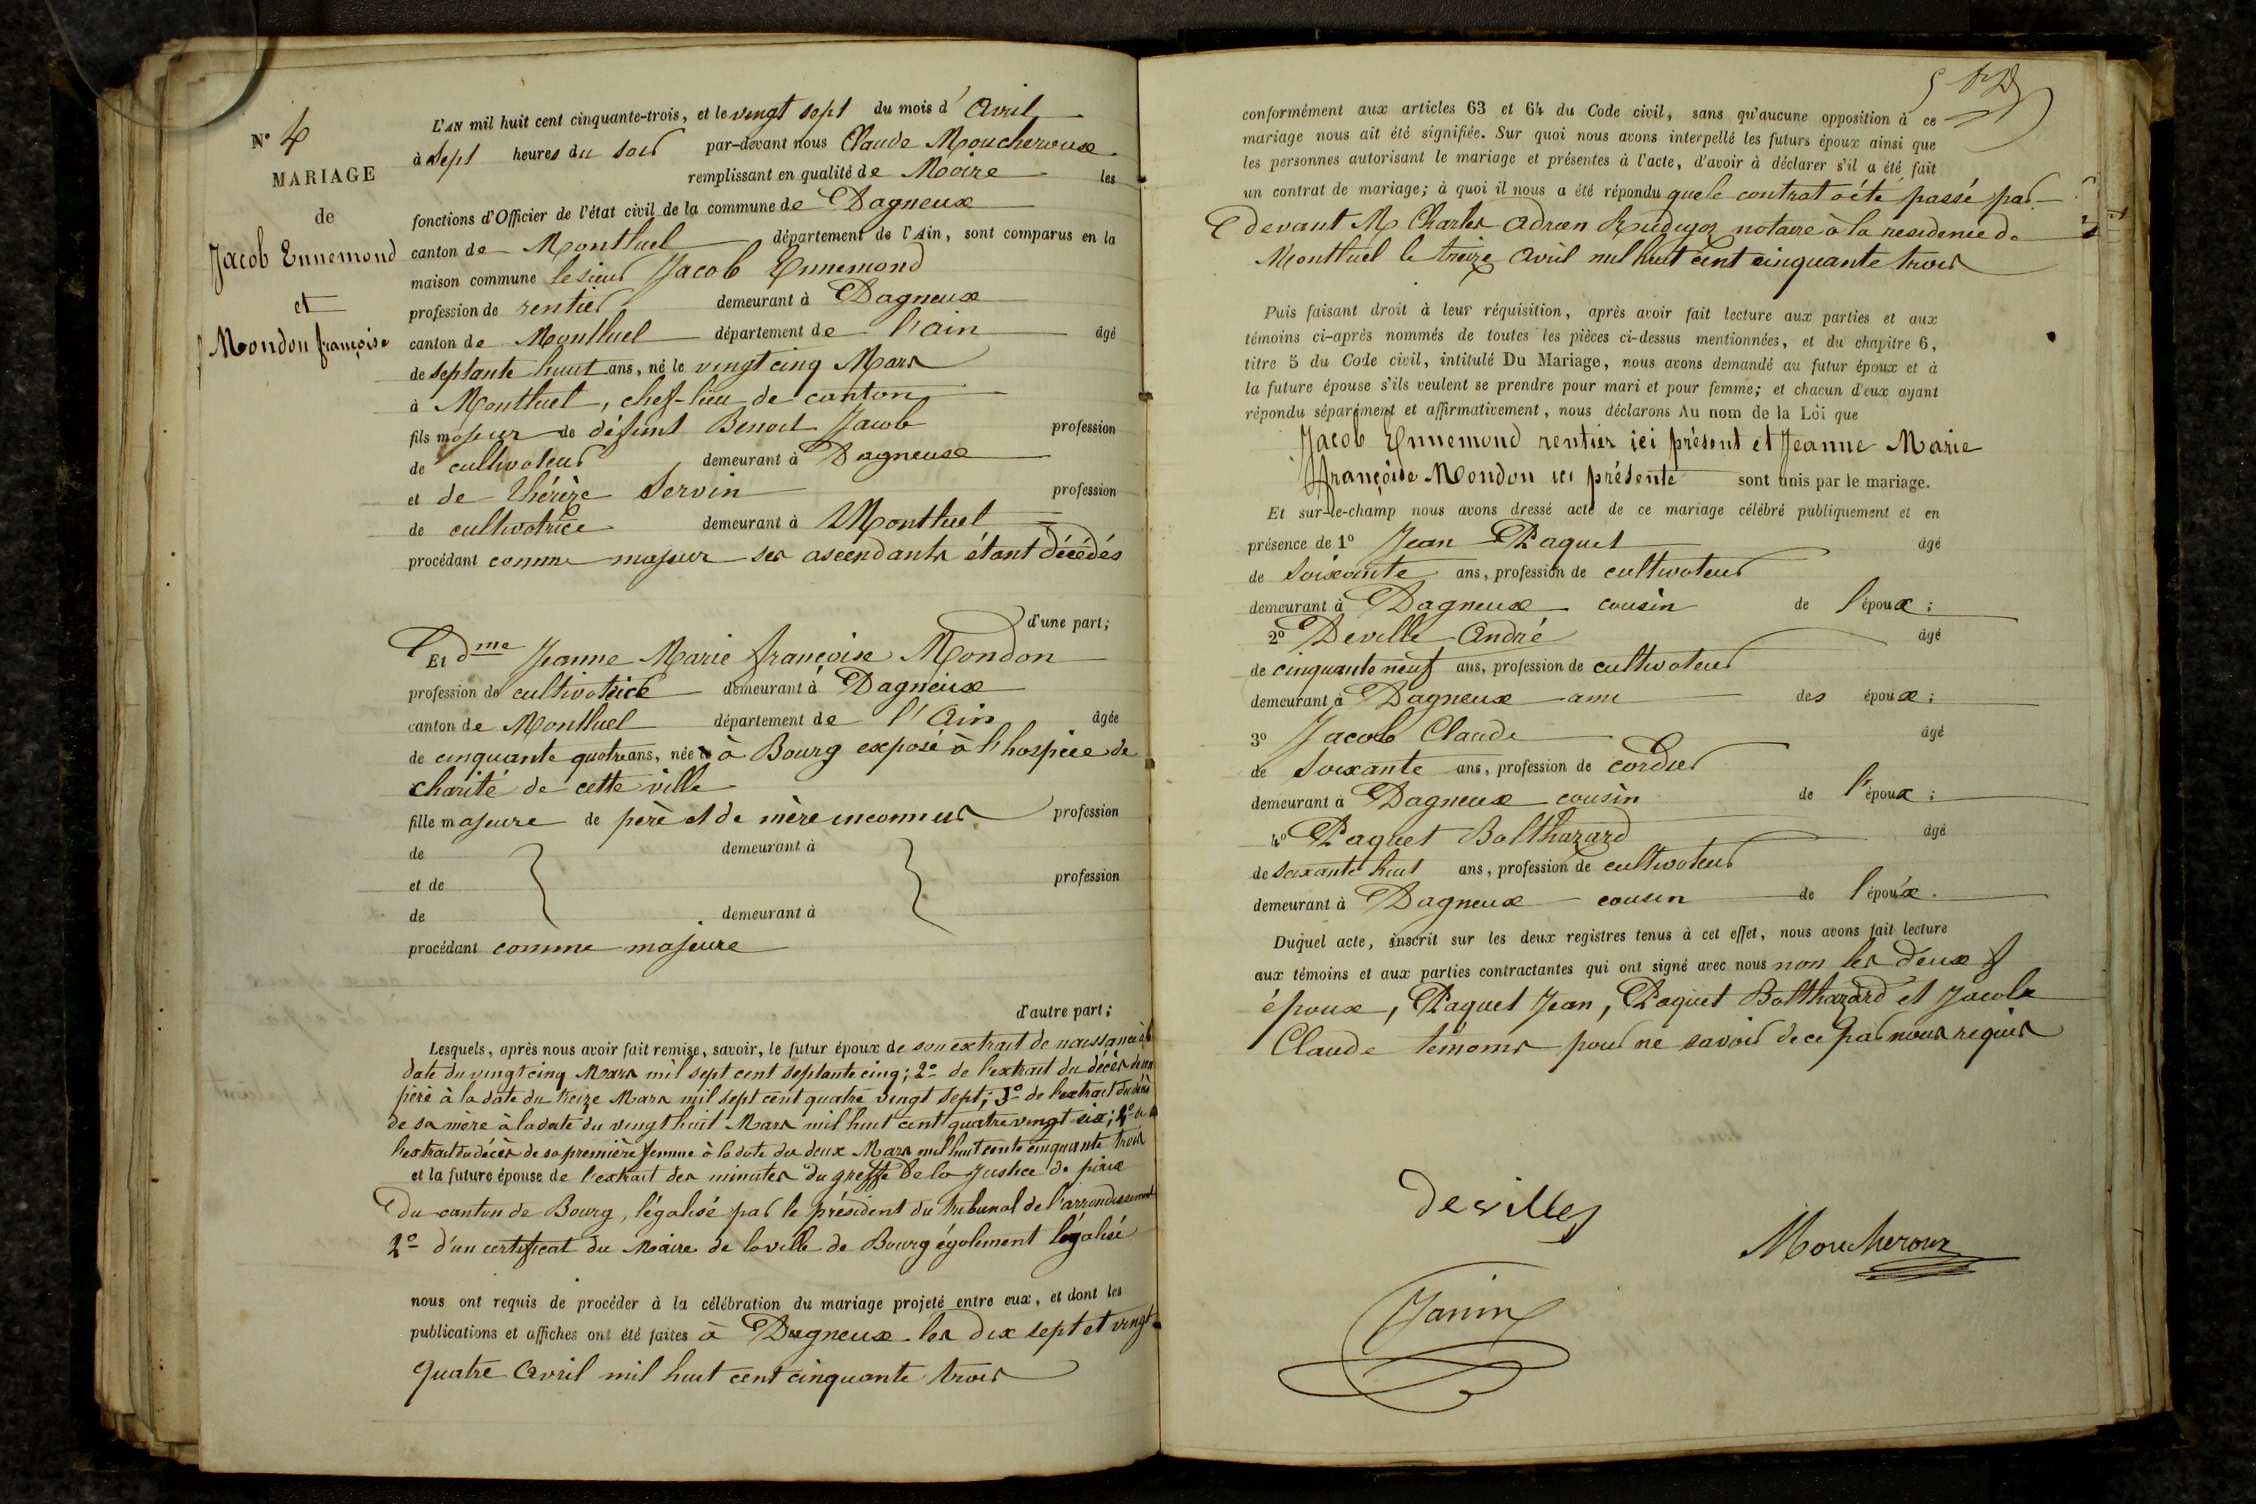 N° 4
MARIAGE
de
Jacob Ennemond
et
Mondon françoise
L'AN mil huit cent cinquante-trois, et le vingt sept du mois d'Avril
à Sept heures du soir par-devant nous Claude Moucheroux
remplissant en qualité de Maire les
fonctions d'Officier de l'état civil de la commune de Dagneux
canton de Montluel département de l'Ain, sont comparus en la
maison commune le sieur Jacob Ennemond
profession de rentier demeurant à Dagneux
canton de Montluel département de l'ain âgé
de septante huit ans, né le vingt cinq Mars
à Montluel, chef-lieu de canton
fils majeur de défunt Benoit Jacob profession
de cultivateur demeurant à Dagneux
et de Thérèze Servin profession
de cultivatrice demeurant à Montluel
procédant comme majeur ses ascendants étant décédés
d'une part;
Et dme Jeanne Marie françoise Mondon
profession de cultivatrice demeurant à Dagneux
canton de Montluel département de l'Ain âgée
de cinquante quatre ans, née à Bourg exposé à l'hospice de
charité de cette ville
fille majeure de père et de mère inconnus profession
de demeurant à
et de profession
de demeurant à
procédant comme majeure
d'autre part;
Lesquels, après nous avoir fait remise, savoir, le futur époux de son extrait de naissance à la
date du vingt cinq Mars mil sept cent septante cinq; 2° de l'extrait du décès de son
père à la date du treize Mars mil sept cent quatre vingt sept; 3° de l'extrait du décès
de sa mère à la date du vingt huit Mars mil huit cent quatre vingt six; 4° de
l'extrait du décès de sa première femme à la date du deux Mars mil huit cents cinquante trois
et la future épouse de l'extrait des minutes du greffe de la Justice de paix
du canton de Bourg, légalisé par le président du tribunal de l'arrondissement
2° d'un certificat du Maire de la ville de Bourg également légalisé
nous ont requis de procéder à la célébration du mariage projeté entre eux, et dont les
publications et affiches ont été faites à Dagneux les dix sept et vingt
quatre Avril mil huit cent cinquante trois
conformément aux articles 63 et 64 du Code civil, sans qu'aucune opposition à ce
mariage nous ait été signifiée. Sur quoi nous avons interpellé les futurs époux ainsi que
les personnes autorisant le mariage et présentes à l'acte, d'avoir à déclarer s'il a été fait
un contrat de mariage; à quoi il nous a été répondu que le contrat a été passé par
devant M Charles Adrien notaire à la residence de
Montluel le treize Avril mil huit cent cinquante trois
Puis faisant droit à leur réquisition, après avoir fait lecture aux parties et aux
témoins ci-après nommés de toutes les pièces ci-dessus mentionnées, et du chapitre 6,
titre 5 du Code civil, intitulé Du Mariage, nous avons demandé au futur époux et à
la future épouse s'ils veulent se prendre pour mari et pour femme; et chacun d'eux ayant
répondu séparément et affirmativement, nous déclarons Au nom de la Loi que
Jacob Ennemond rentier ici présent et Jeanne Marie
françoise Mondon ici présente sont unis par le mariage.
Et sur-le-champ nous avons dressé acte de ce mariage célébré publiquement et en
présence de 1° Jean Paquet âgé
de Soixante ans, profession de cultivateur
demeurant à Dagneux cousin de l'époux;
2° Deville André âgé
de cinquante neuf ans, profession de cultivateur
demeurant à Dagneux ami des époux;
3° Jacob Claude âgé
de Soixante ans, profession de cordier
demeurant à Dagneux cousin de l'époux;
4° Paquet Balthazard âgé
de soixante huit ans, profession de cultivateur
demeurant à Dagneux cousin de l'époux.
Duquel acte, inscrit sur les deux registres tenus à cet effet, nous avons fait lecture
aux témoins et aux parties contractantes qui ont signé avec nous non les deux
époux, Paquet Jean, Paquet Balthazard et Jacob
Claude témoins pour ne savoir de ce par nous requis
devilles
Moucheroux
Janin